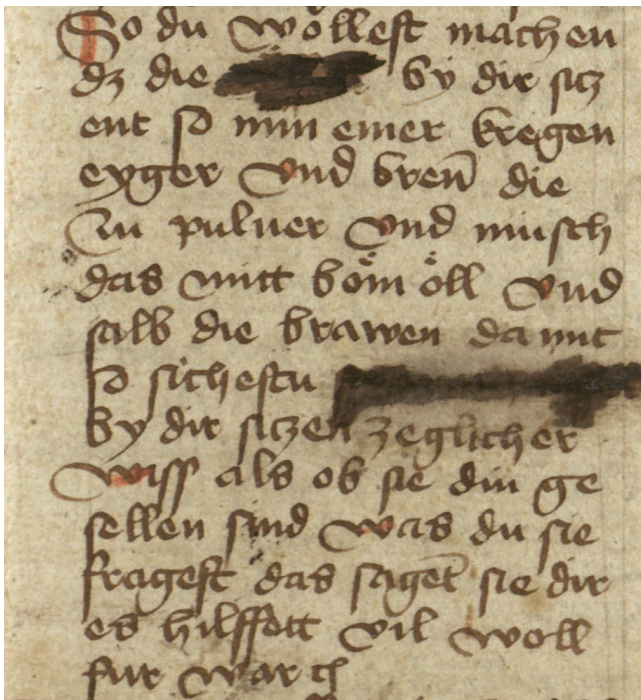 So du wöllest machen
dz die by dir sitz
ent so nim einer kregen
eyger vnd bren̄ die
zu puluer vnd misch
das mitt bo̊m o̊ll vnd
salb die brawen da mit
so sichestu
by dir sitzen zeglicher
wiss als ob sie din ge
sellen sind was du sie
fragest das saget̄ sie dir
es hilffett vil woll
fur war